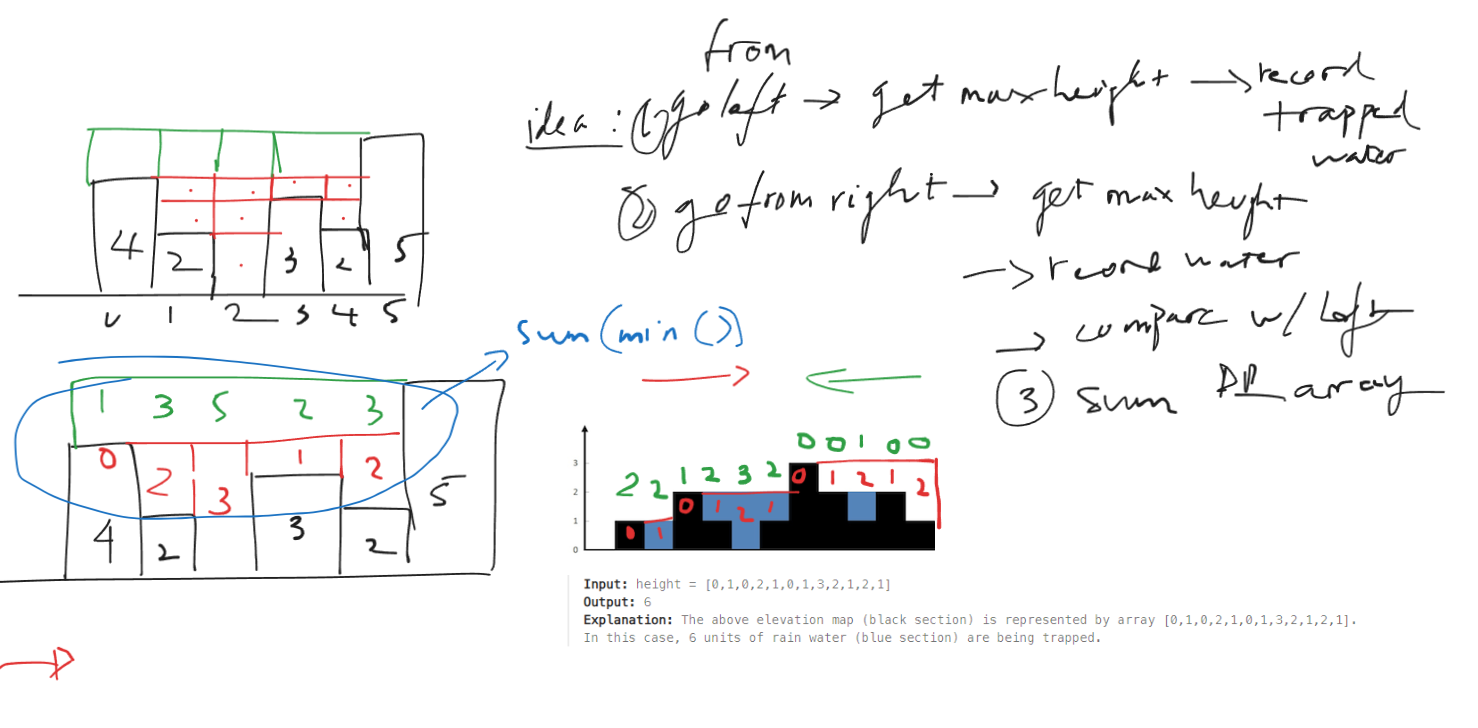 from
idea : (1) go left → get max height → record
trapped
water
(2) go from right → get max height
→ record water
→ compare w/ left
(3) sum DP array
4 2 3 2 5
0 1 2 3 4 5
sum(min())
1 3 5 2 3
0 2 3 1 2
4 2 3 2 5
0 0 1 0 0
2 2 1 2 3 2
0 1 0 1 2 1 0 1 2 1 2
3
2
1
0
Input: height = [0,1,0,2,1,0,1,3,2,1,2,1]
Output: 6
Explanation: The above elevation map (black section) is represented by array [0,1,0,2,1,0,1,3,2,1,2,1].
In this case, 6 units of rain water (blue section) are being trapped.